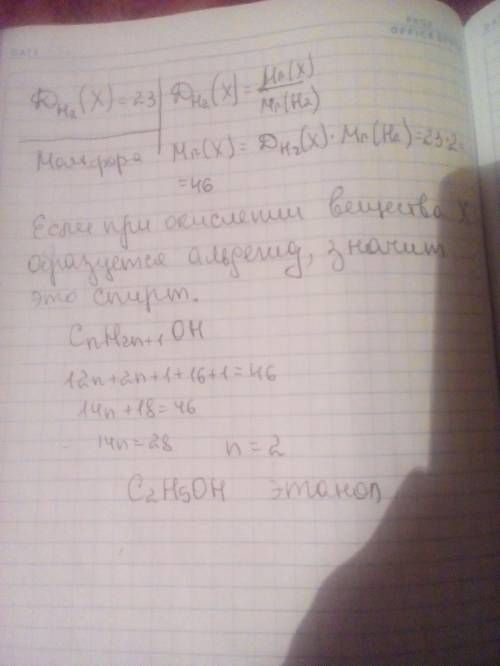 DATE
PAGE
OFFICE S
D_H₂(X)=23 | D_H₂(X)=Mr(X)/Mr(H₂)
Мол. фор-а | Mr(X)=D_H₂(X)·Mr(H₂)=23·2=
=46
Если при окислении вещества X
образуется альдегид, значит
это спирт.
CnH2n+1OH
12n+2n+1+16+1=46
14n+18=46
14n=28 n=2
C₂H₅OH этанол